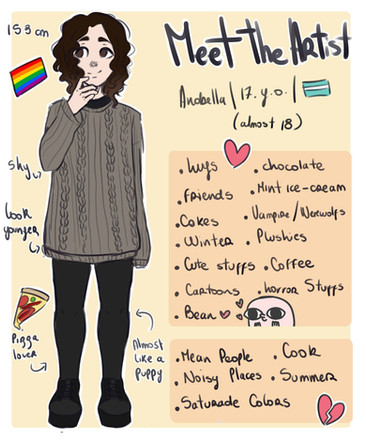 Meet The Artist
153 cm
Anabella | 17. y.o. |
(almost 18)
shy
look
younger
Pizza
lover
Almost
like a
puppy
• hugs
• friends
• Cakes
• Winter
• Cute stuffs
• Cartoons
• Bean
• chocolate
• Mint ice-cream
• Vampire/Werewolfs
• Plushies
• Coffee
• horror Stuffs
• Mean People
• Noisy Places
• Saturade Colors
• Cook
• Summer